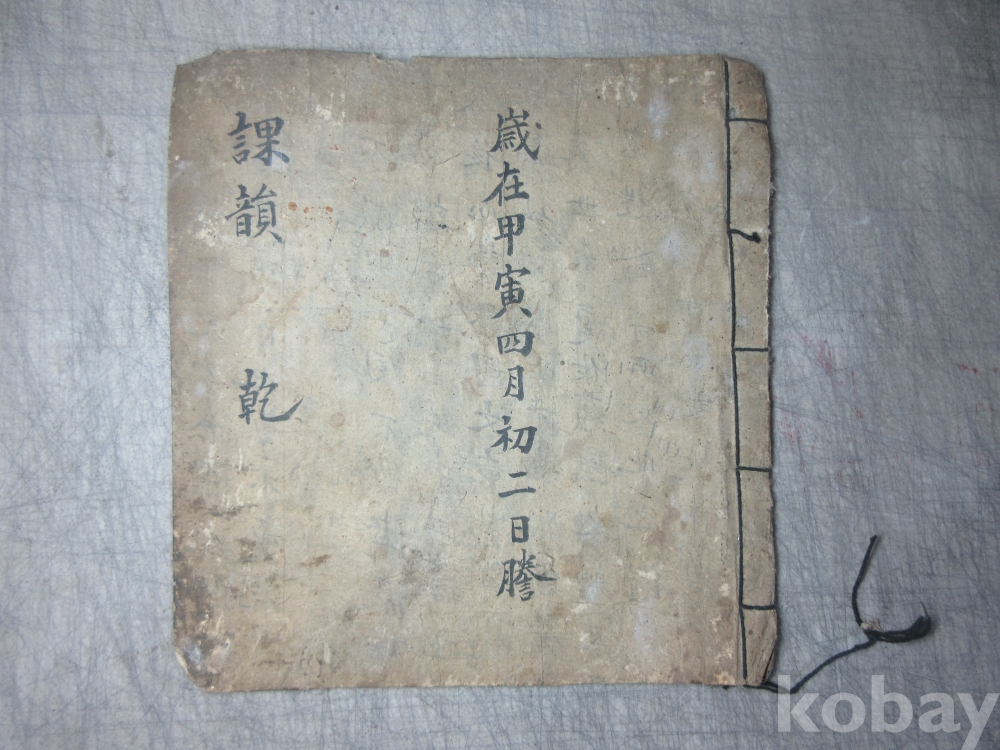 歲在甲寅四月初二日謄
課韻 乾
kobay